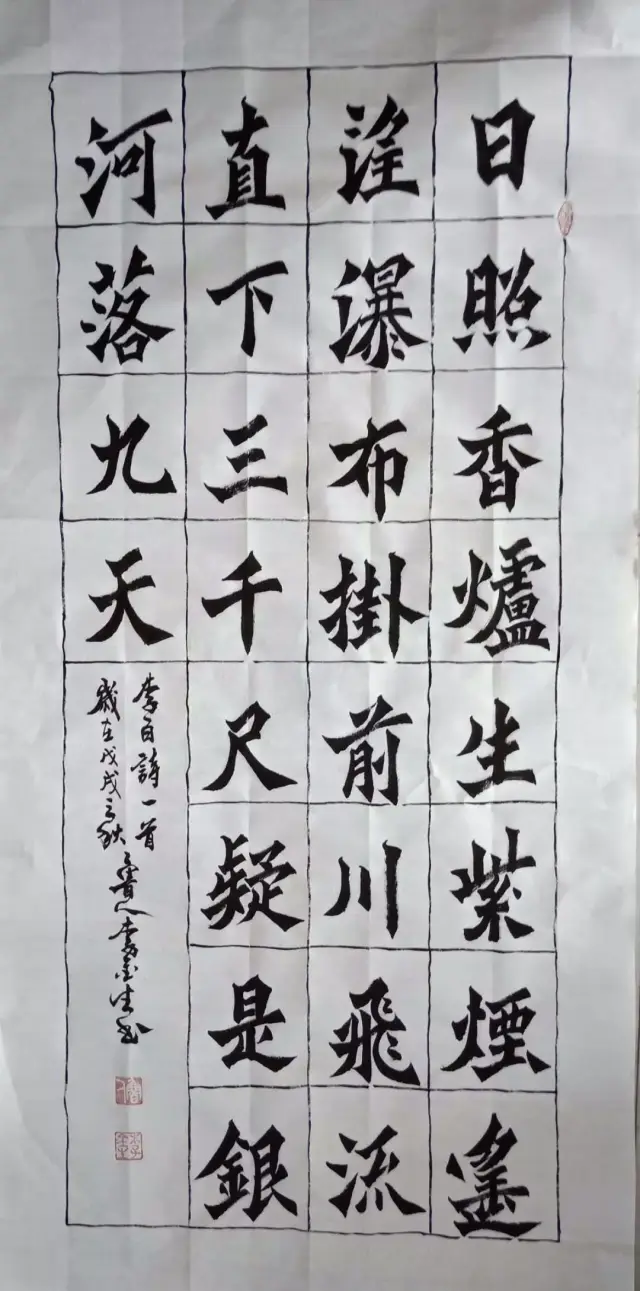 日照香爐生紫煙遙
望瀑布掛前川飛流
直下三千尺疑是銀
河落九天
李白詩一首
歲在戊戌之秋魯人李金生书